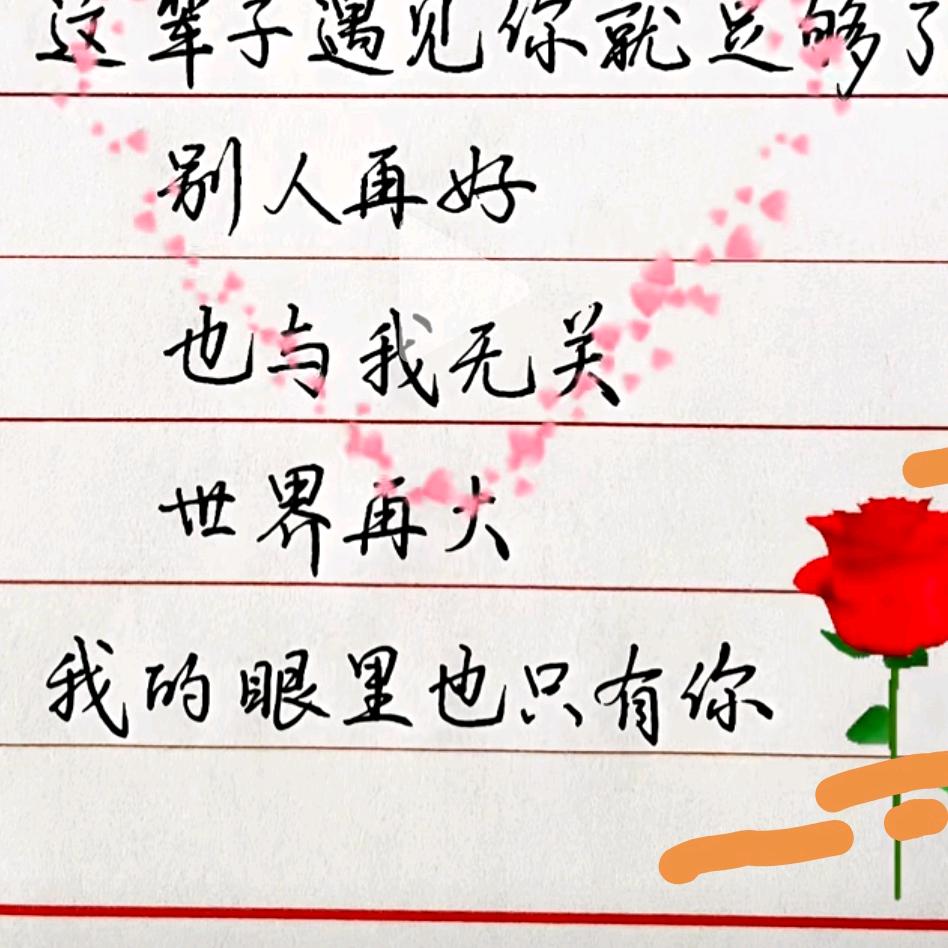 这辈子遇见你就足够了
别人再好
也与我无关
世界再大
我的眼里也只有你